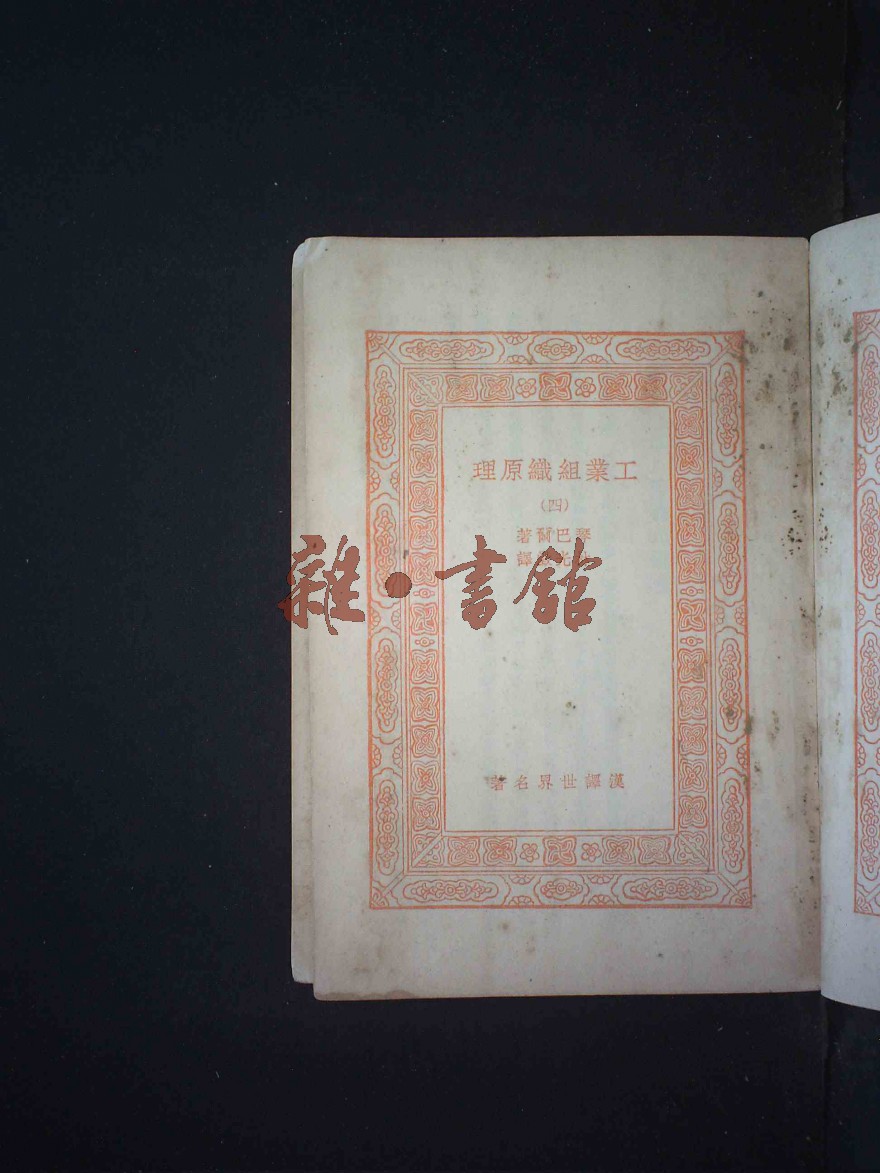 工業組織原理
(四)
琴巴爾著
光譯
雜·書館
漢譯世界名著